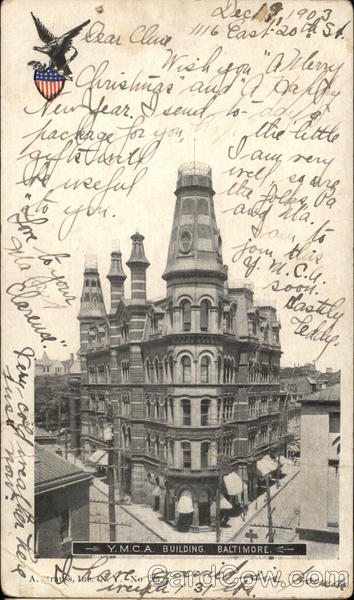 Dec 19, 1903
1116 East-20th St.
Dear Clive
Wish you "A Merry
Christmas" and "A Happy
New Year. I send to-day a
package for you, hope the little
gifts will
be useful
to you.
I am very
well so are
the folks, Pa
and Ma.
I am to
join this
Y.M.C.A.
soon.
Hastly
Teddy.
"Love to your
Ma and
Clarence"
Very cold weather here
just now.
Y.M.C.A. BUILDING. BALTIMORE.
I have
weight
CardCow.com